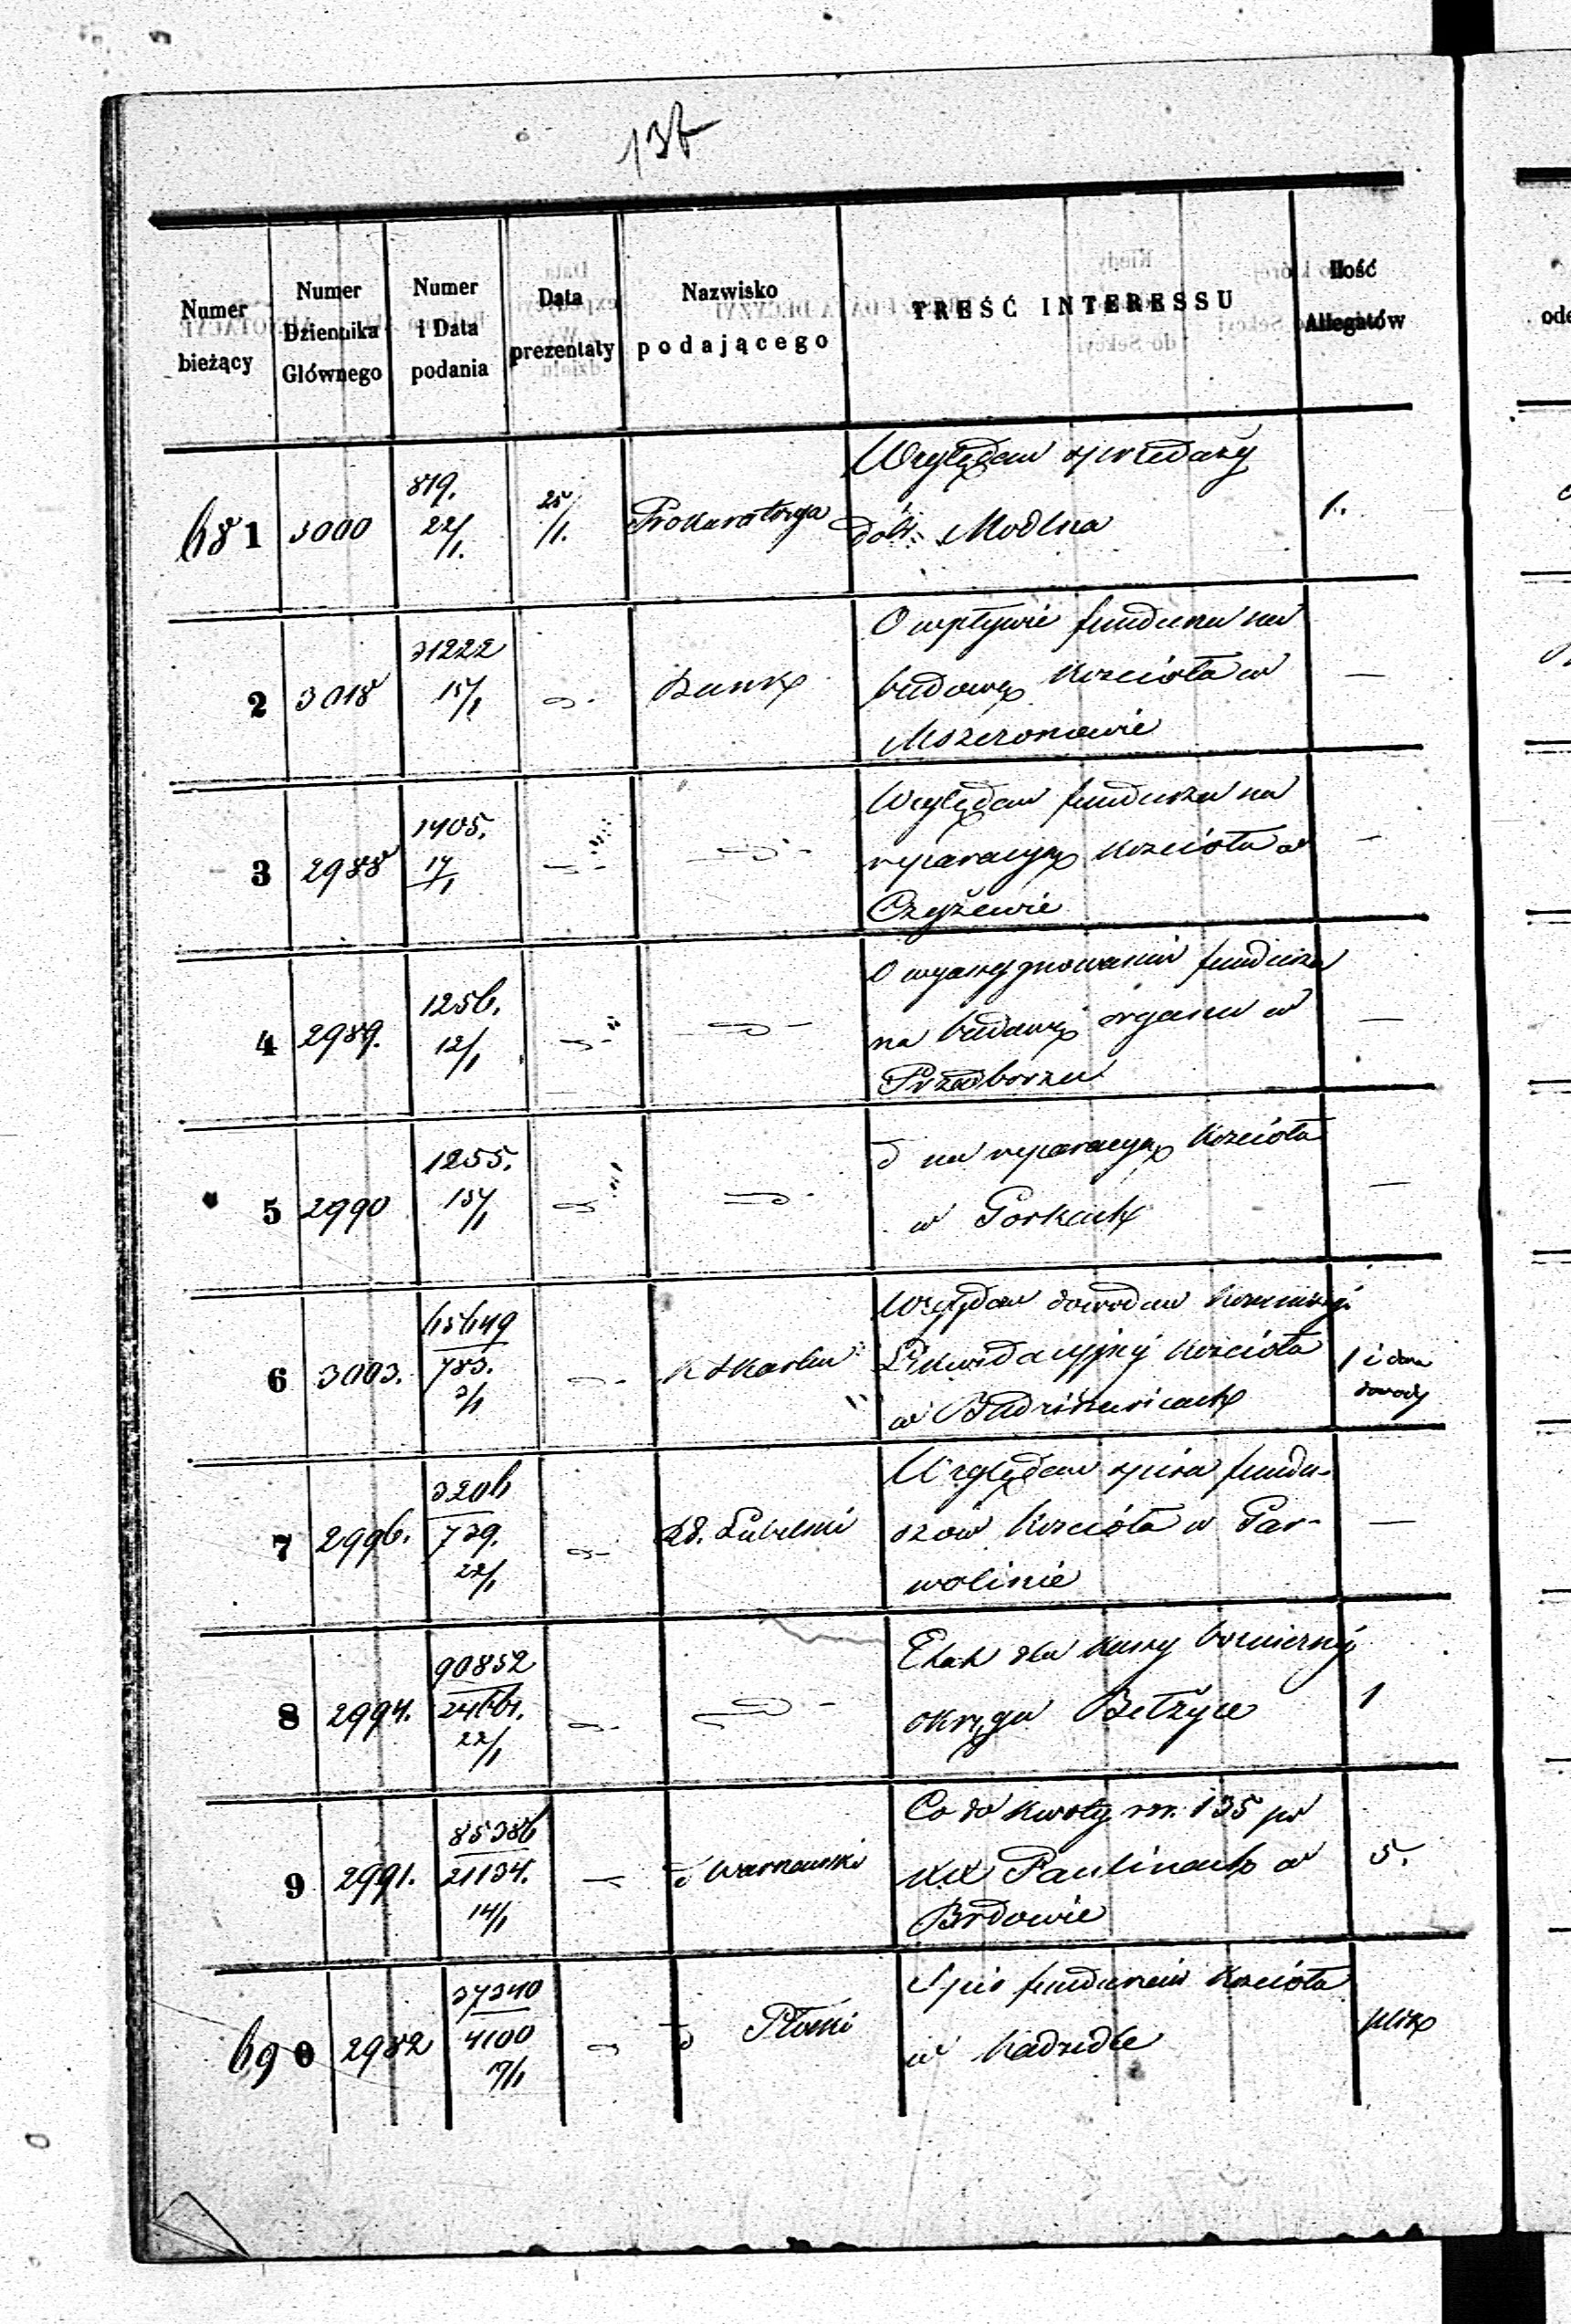 137
Numer
bieżący
Numer
Dziennika
Głównego
Numer
i Data
podania
Data
prezentaty
Nazwisko
podającego
TREŚĆ INTERESSU
Ilość
Allegatów
681
3000
819.
22/1.
25/1.
Prokuratorya
Względem sprzedaży
dóbr Modlna
1.
2
3018
31222
15/1
Bank
O wpływie funduszu na
budowę Kościoła w
Mszczonowie
—
3
2988
1405.
17/1
Względem funduszu na
reparacyę Kościoła w
Czyżewie
—
4
2989.
1256.
12/1
O wyasygnowaniu funduszu
na budowę organu w
Przedborzu
—
5
2990
1255.
15/1
d na reparacyę Kościoła
w Gorkach
—
6
3003.
65649
783.
3/1
K Skarbu
Względem dowodów
Likwidacyjnej Kościoła
w
1 i dwa
dowody
7
2996.
3206
739.
22/1
Rd. Lubelski
Względem spisu fundu-
szów Kościoła w Gar-
wolinie
—
8
2994.
90852
24661.
22/1
Etat dla Kassy
okręgu Bełżyce
1
9
2991.
85386
21134.
14/1
d Warszawski
Co do kwoty rsr. 135 po
XX Paulinach w
Brdowie
5.
690
2982
37340
4100
17/1
d Płocki
Spis funduszów Kościoła
w Kadzidle
plik